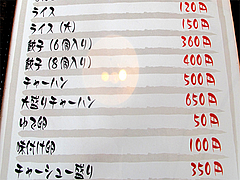 ライス 120円
ライス(大) 150円
餃子(6個入り) 360円
餃子(8個入り) 400円
チャーハン 500円
大盛りチャーハン 650円
ゆで卵 50円
味付け卵 100円
チャーシュー盛り 350円